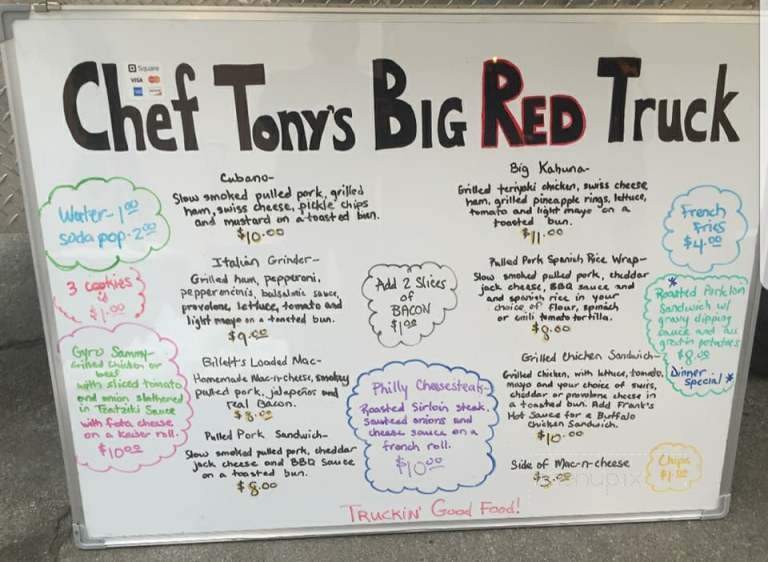 Square
VISA
Chef Tony's Big Red Truck
Water-1.00
soda pop-2.00
3 cookies
is
$1.00
Gyro Sammy-
Grilled Chicken or
beef
with sliced tomato
and onion slathered
in Tzatziki Sauce
with feta cheese
on a Kaiser roll.
$10.00
Cubano-
Slow smoked pulled pork, grilled
ham, swiss cheese, pickle chips
and mustard on a toasted bun.
$10.00
Italian Grinder-
Grilled ham, pepperoni,
pepperoncinis, balsalmic sauce,
provolone, lettuce, tomato and
light mayo on a toasted bun.
$9.00
Billett's Loaded Mac-
Homemade Mac-n-cheese, smokey
pulled pork, jalepeños and
real Bacon.
$8.00
Pulled Pork Sandwich-
Slow smoked pulled pork, cheddar
jack cheese and BBQ Sauce
on a toasted bun.
$8.00
Add 2 Slices
of
BACON
$1.00
Philly Cheesesteak-
Roasted Sirloin steak,
sauteed onions and
cheese sauce on a
french roll.
$10.00
Big Kahuna-
Grilled teriyaki chicken, swiss cheese,
ham, grilled pineapple rings, lettuce,
tomato and light mayo on a
toasted bun.
$11.00
Pulled Pork Spanish Rice Wrap-
Slow smoked pulled pork, cheddar
jack cheese, BBQ sauce and
and spanish rice in your
choice of flour, spinach
or chili tomato tortilla.
$9.00
Grilled Chicken Sandwich-
Grilled Chicken, with lettuce, tomato,
mayo and your choice of swiss,
cheddar or provolone cheese in
a toasted bun. Add Frank's
Hot Sauce for a Buffalo
Chicken Sandwich.
$10.00
Side of Mac-n-cheese
$3.00
French
Fries
$4.00
* Roasted Porkloin
Sandwich w/
gravy dipping
sauce and au
gratin potatoes
$8.00
Dinner
Special *
Chips
$1.00
Truckin' Good Food!